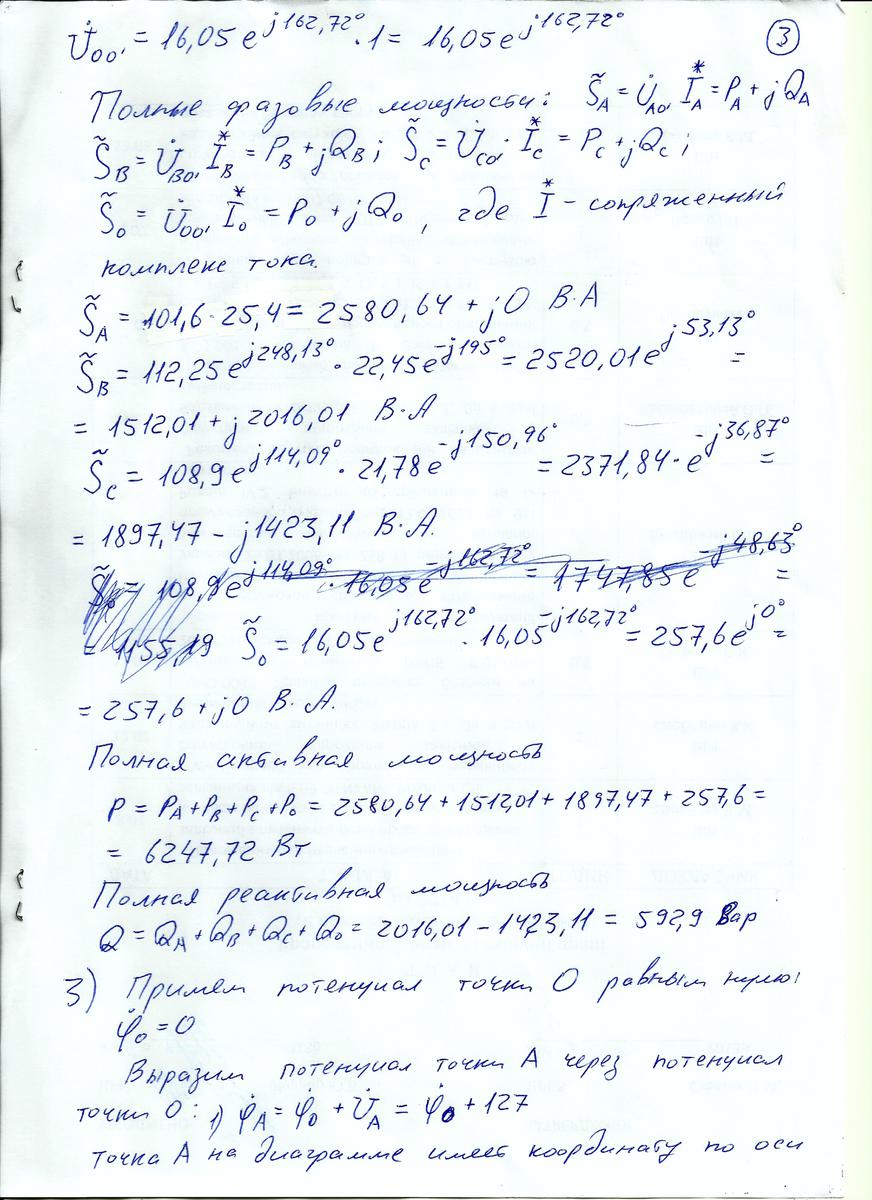 U̇₀₀' = 16,05 e^{j162,72°} · 1 = 16,05 e^{j162,72°}
3
Полные фазовые мощности: S̃_A = U̇_{A0'} I*_A = P_A + jQ_A
S̃_B = U̇_{B0'} I*_B = P_B + jQ_B; S̃_C = U̇_{C0'} · I*_C = P_C + jQ_C;
S̃₀ = U̇_{00'} I*₀ = P₀ + jQ₀, где I* – сопряженный
комплекс тока.
S̃_A = 101,6 · 25,4 = 2580,64 + j0 В·А
S̃_B = 112,25 e^{j248,13°} · 22,45 e^{-j195°} = 2520,01 e^{j53,13°} =
= 1512,01 + j2016,01 В·А
S̃_C = 108,9 e^{j114,09°} · 21,78 e^{-j150,96°} = 2371,84 · e^{-j36,87°} =
= 1897,47 – j1423,11 В·А.
= 108,9 e^{j114,09°} · 16,05 e^{-j162,72°} = 1747,85 e^{-j48,63°} =
= 1155,19 S̃₀ = 16,05 e^{j162,72°} · 16,05^{-j162,72°} = 257,6 e^{j0°} =
= 257,6 + j0 В·А.
Полная активная мощность
P = P_A + P_B + P_C + P₀ = 2580,64 + 1512,01 + 1897,47 + 257,6 =
= 6247,72 Вт
Полная реактивная мощность
Q = Q_A + Q_B + Q_C + Q₀ = 2016,01 – 1423,11 = 592,9 Вар
3) Примем потенциал точки 0 равным нулю:
φ̇₀ = 0
Выразим потенциал точки А через потенциал
точки 0: 1) φ̇_A = φ̇₀ + U̇_A = φ̇₀ + 127
точка А на диаграмме имеет координату по оси